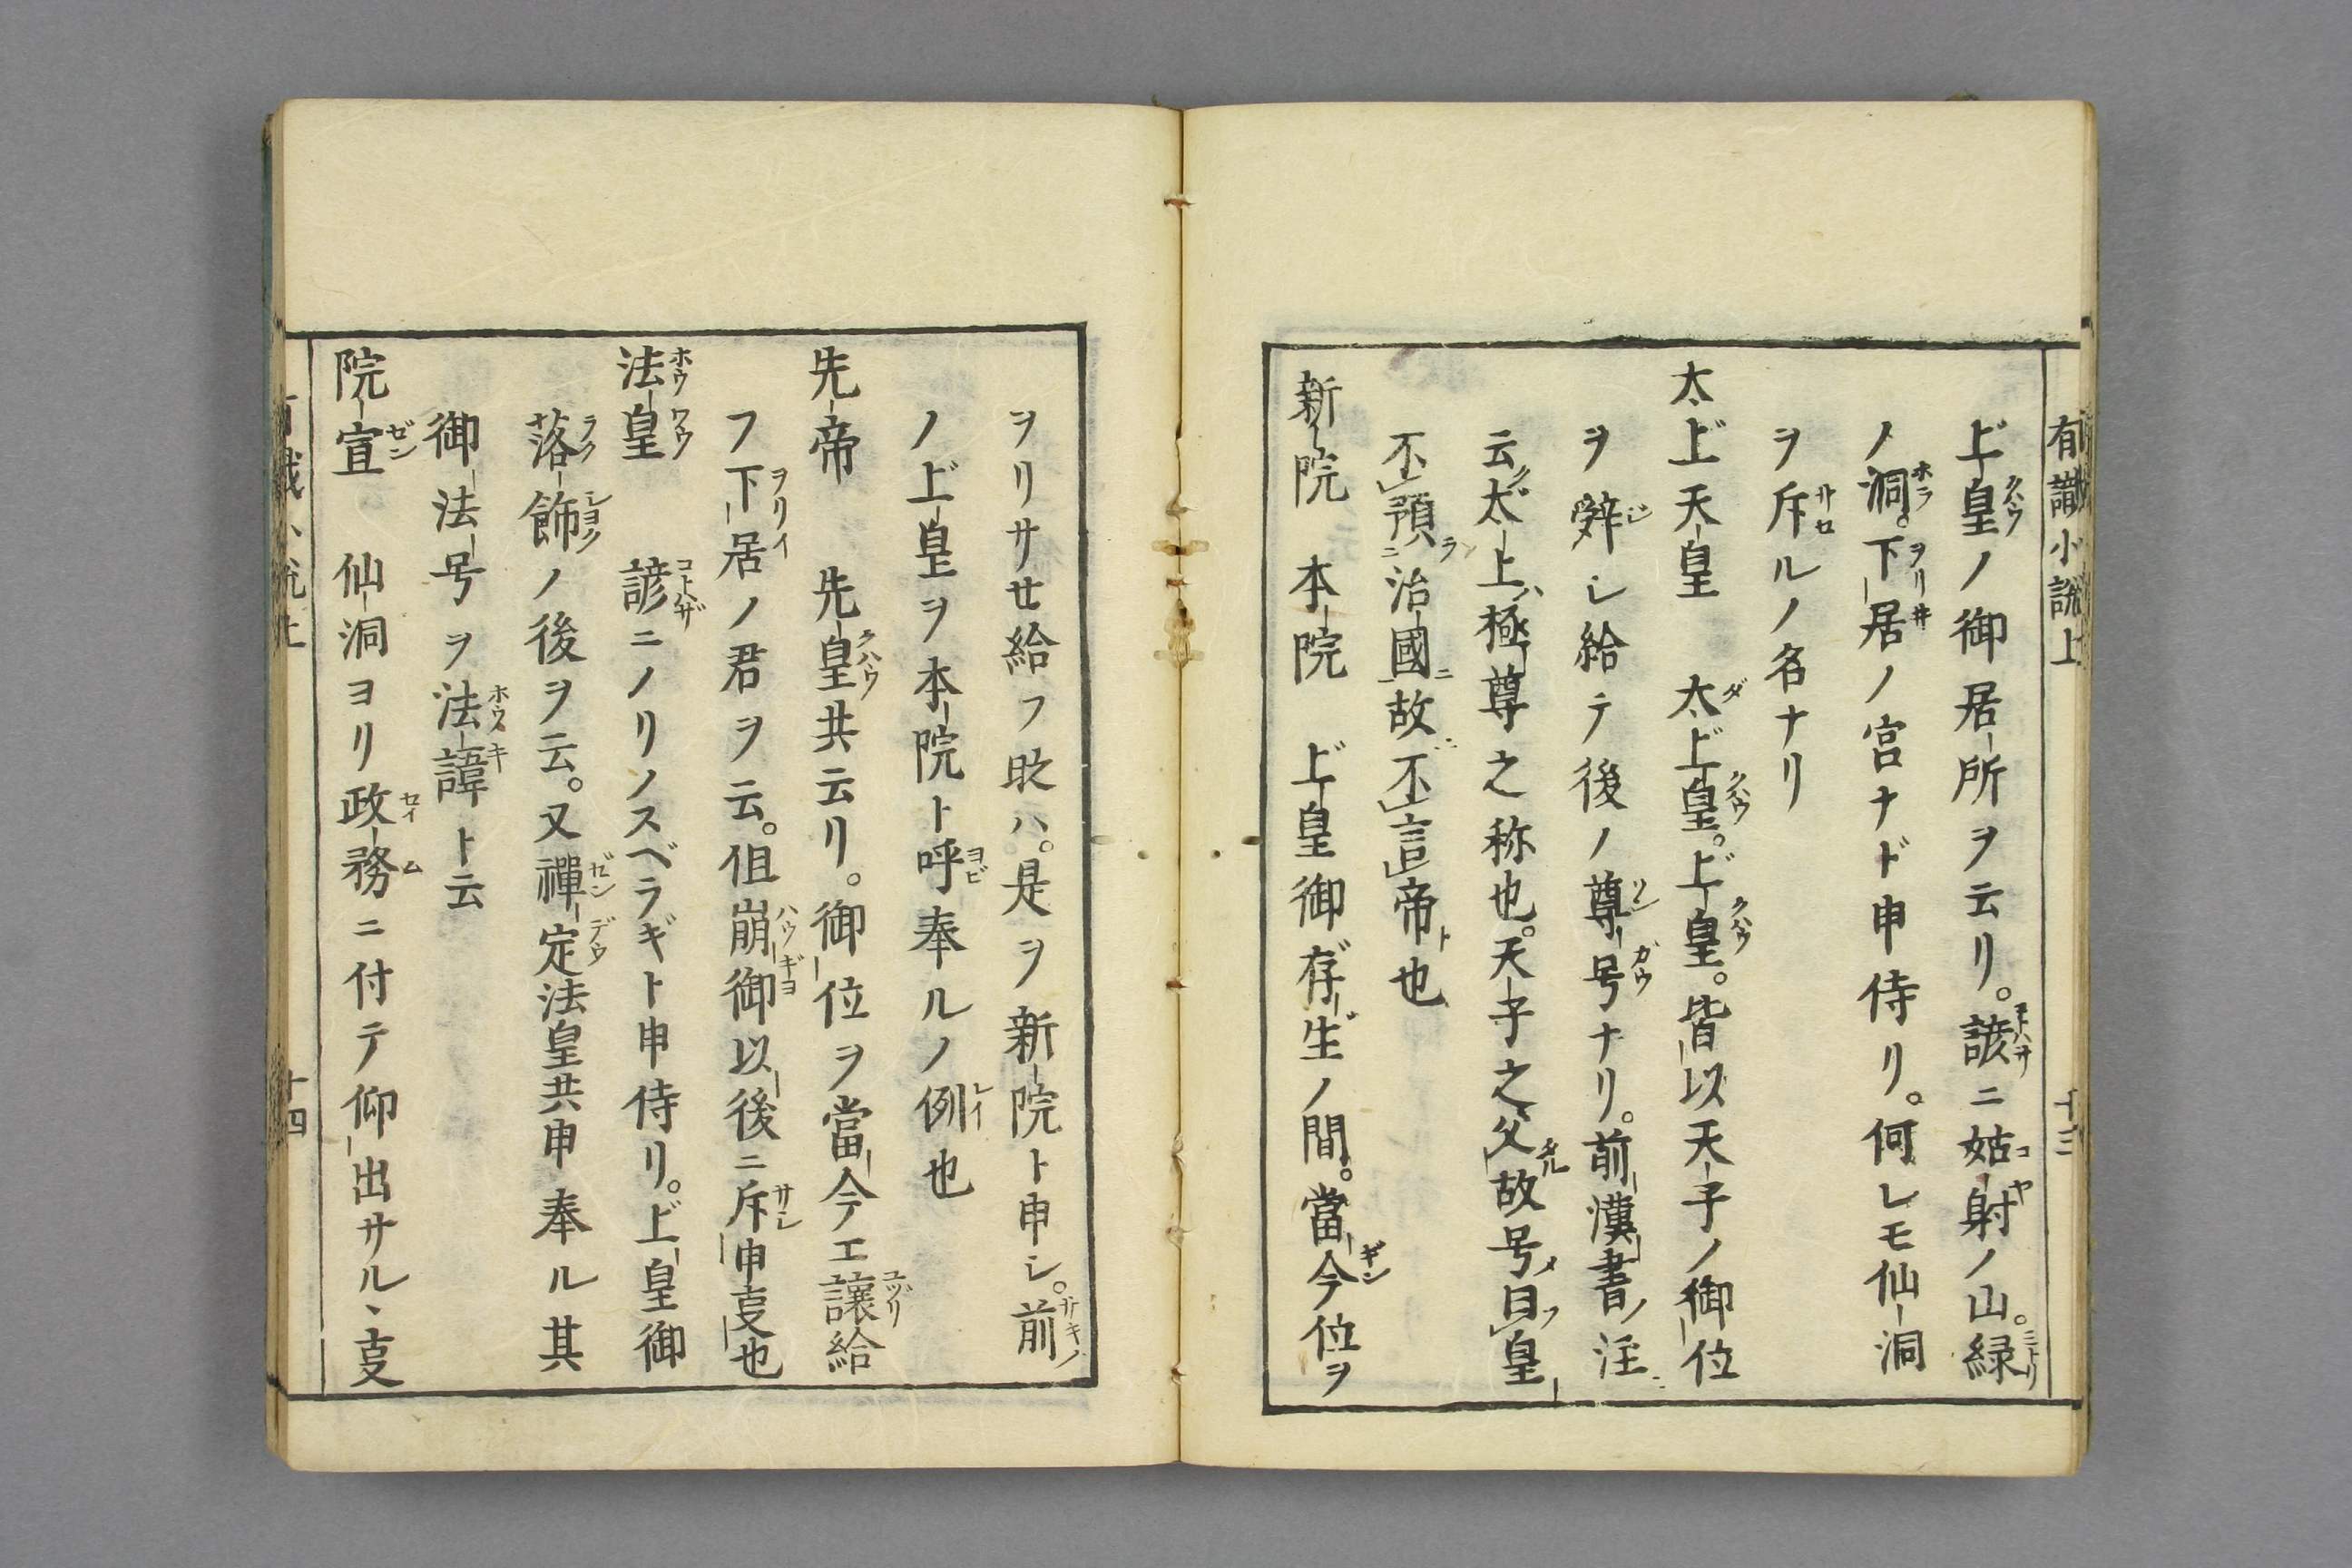 有識小説上 十三
上皇ノ御居所ヲ云リ。諺ニ姑射ノ山。緑
ノ洞。下居ノ宮ナド申侍リ。何レモ仙洞
ヲ斥ルノ名ナリ
太上天皇 太上皇。上皇。皆以天子ノ御位
ヲ辤シ給テ後ノ尊号ナリ。前漢書ノ注ニ
云太上ハ極尊之称也。天子之父故号曰皇
不預治國故不言帝也
新院 本院 上皇御存生ノ間。當今位ヲ
ヲリサセ給フ时ハ。是ヲ新院ト申シ。前
ノ上皇ヲ本院ト呼奉ルノ例也
先帝 先皇共云リ。御位ヲ當今エ讓給
フ下居ノ君ヲ云。但崩御以後ニ斥申叓也
法皇 諺ニノリノスベラギト申侍リ。上皇御
落飾ノ後ヲ云。又禪定法皇共申奉ル其
御法号ヲ法諱ト云
院宣 仙洞ヨリ政務ニ付テ仰出サルヽ叓
十四